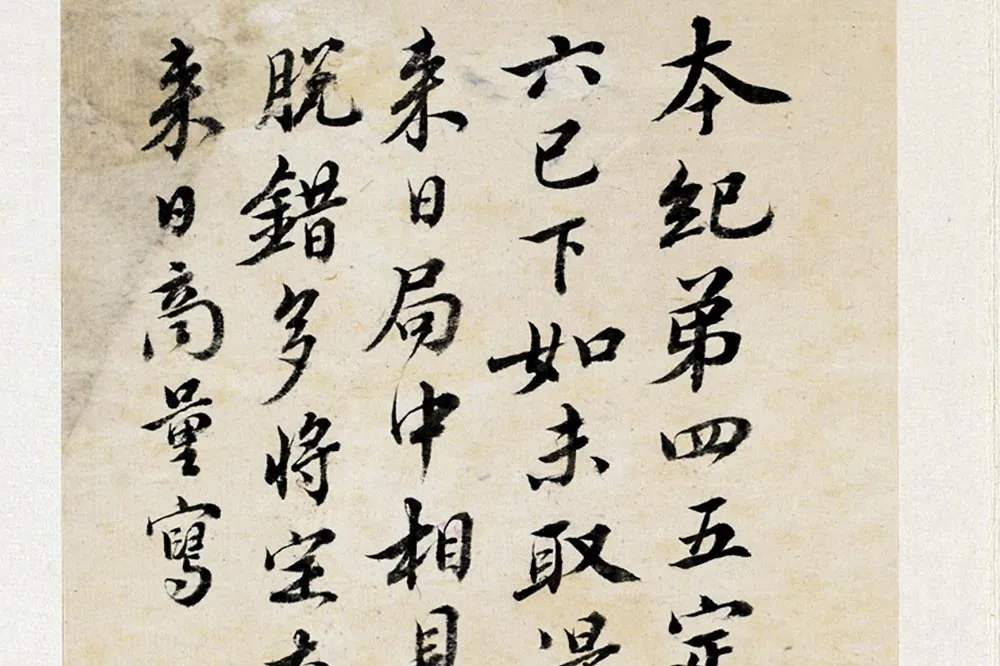 本紀第四五定
六已下如未取得
来日局中相見
脱錯多將定本
来日商量寫